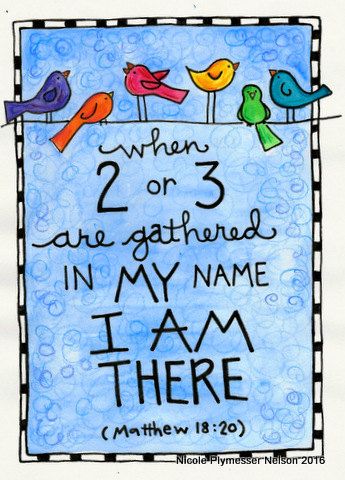 when
2 or 3
are gathered
IN MY NAME
I AM
THERE
(Matthew 18:20)
Nicole Plymesser Nelson 2016